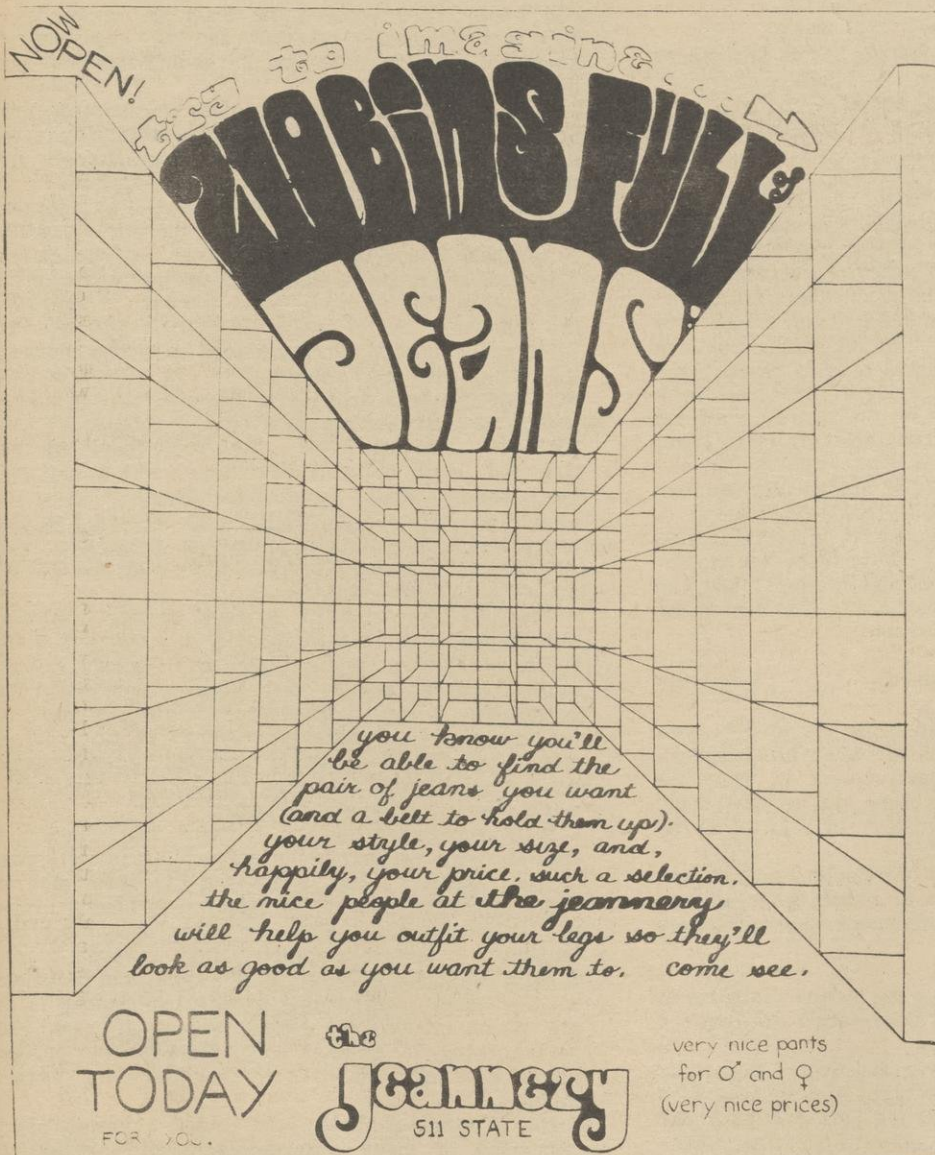 NOW
OPEN!
try to imagine...
210 BINS FULL of
JEANS:
you know you'll
be able to find the
pair of jeans you want
(and a belt to hold them up).
your style, your size, and,
happily, your price. such a selection.
the nice people at the jeannery
will help you outfit your legs so they'll
look as good as you want them to. come see.
OPEN
TODAY
FOR YOU.
the
JEANNERY
511 STATE
very nice pants
for ♂ and ♀
(very nice prices)